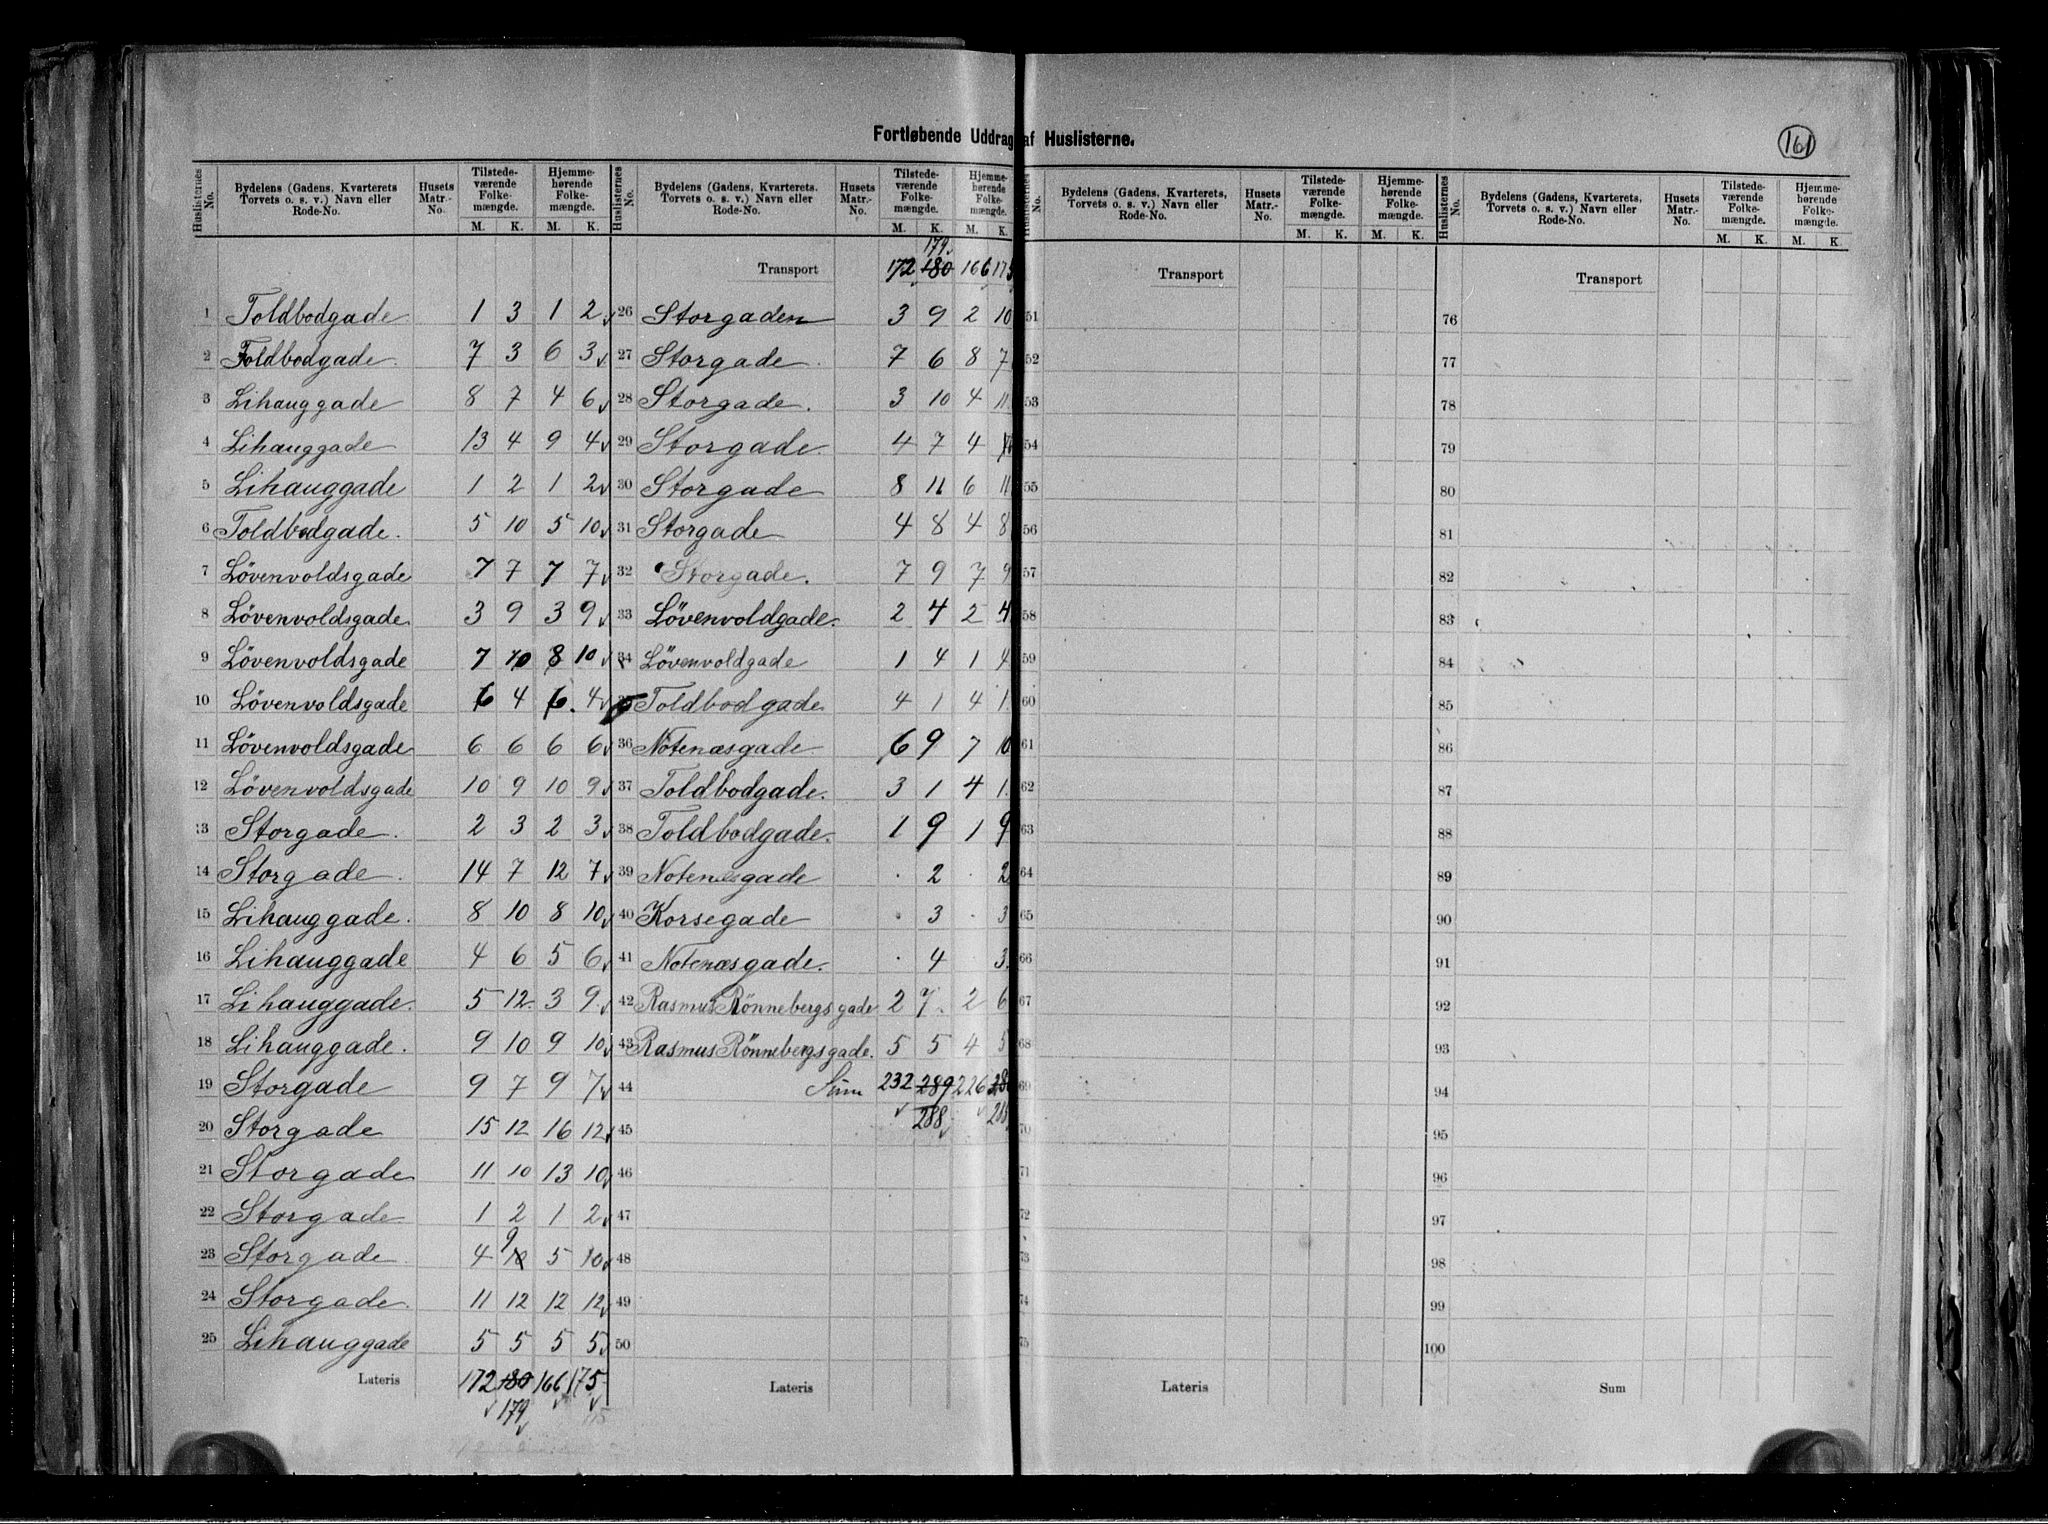 Fortløbende Uddrag af Huslisterne.
161
Huslisternes No. | Bydelens (Gadens, Kvarterets Torvets o. s. v.) Navn eller Rode-No. | Husets Matr.-No. | Tilstede-værende Folke-mængde. M. K. | Hjemme-hørende Folke-mængde. M. K.
1 Toldbodgade 1 3 1 2
2 Toldbodgade. 7 3 6 3
3 Lihauggade 8 7 4 6
4 Lihauggade 13 4 9 4
5 Lihauggade 1 2 1 2
6 Toldbodgade. 5 10 5 10
7 Lövenvoldsgade 7 7 7 7
8 Lövenvoldsgade 3 9 3 9
9 Lövenvoldsgade 7 10 8 10
10 Lövenvoldsgade 6 4 6 4
11 Lövenvoldsgade 6 6 6 6
12 Lövenvoldsgade 10 9 10 9
13 Storgade. 2 3 2 3
14 Storgade. 14 7 12 7
15 Lihauggade. 8 10 8 10
16 Lihauggade 4 6 5 6
17 Lihauggade. 5 12 3 9
18 Lihauggade. 9 10 9 10
19 Storgade 9 7 9 7
20 Storgade 15 12 16 12
21 Storgade 11 10 13 10
22 Storgade 1 2 1 2
23 Storgade. 4 9 5 10
24 Storgade. 11 12 12 12
25 Lihauggade 5 5 5 5
Lateris 172 180 166 175
179
Huslisternes No. | Bydelens (Gadens, Kvarterets, Torvets o. s. v.) Navn eller Rode-No. | Husets Matr.-No. | Tilstede-værende Folke-mængde. M. K. | Hjemme-hørende Folke-mængde. M. K.
179
Transport 172 180 166 175
26 Storgaden 3 9 2 10
27 Storgade. 7 6 8 7
28 Storgade. 3 10 4 11
29 Storgade. 4 7 4
30 Storgade 8 11 6 11
31 Storgade 4 8 4 8
32 Storgade. 7 9 7 9
33 Lövenvoldgade. 2 4 2 4
34 Lövenvoldgade 1 4 1 4
35 Toldbodgade. 4 1 4 1
36 Notenæsgade. 6 9 7 10
37 Toldbodgade. 3 1 4 1
38 Toldbodgade. 1 9 1 9
39 Notenæsgade . 2 . 2
40 Korsegade . 3 . 3
41 Notenæsgade. . 4 3
42 Rasmus Rönnebergsgade 2 7 2 6
43 Rasmus Rönnebergsgade. 5 5 4 5
44 Sum 232 289 226
288
45
46
47
48
49
50
Lateris
Huslisternes No. | Bydelens (Gadens, Kvarterets, Torvets o. s. v.) Navn eller Rode-No. | Husets Matr.-No. | Tilstede-værende Folke-mængde. M. K. | Hjemme-hørende Folke-mængde. M. K.
Transport
51
52
53
54
55
56
57
58
59
60
61
62
63
64
65
66
67
68
69
70
71
72
73
74
75
Lateris
Huslisternes No. | Bydelens (Gadens, Kvarterets, Torvets o. s. v.) Navn eller Rode-No. | Husets Matr.-No. | Tilstede-værende Folke-mængde. M. K. | Hjemme-hørende Folke-mængde. M. K.
Transport
76
77
78
79
80
81
82
83
84
85
86
87
88
89
90
91
92
93
94
95
96
97
98
99
100
Sum